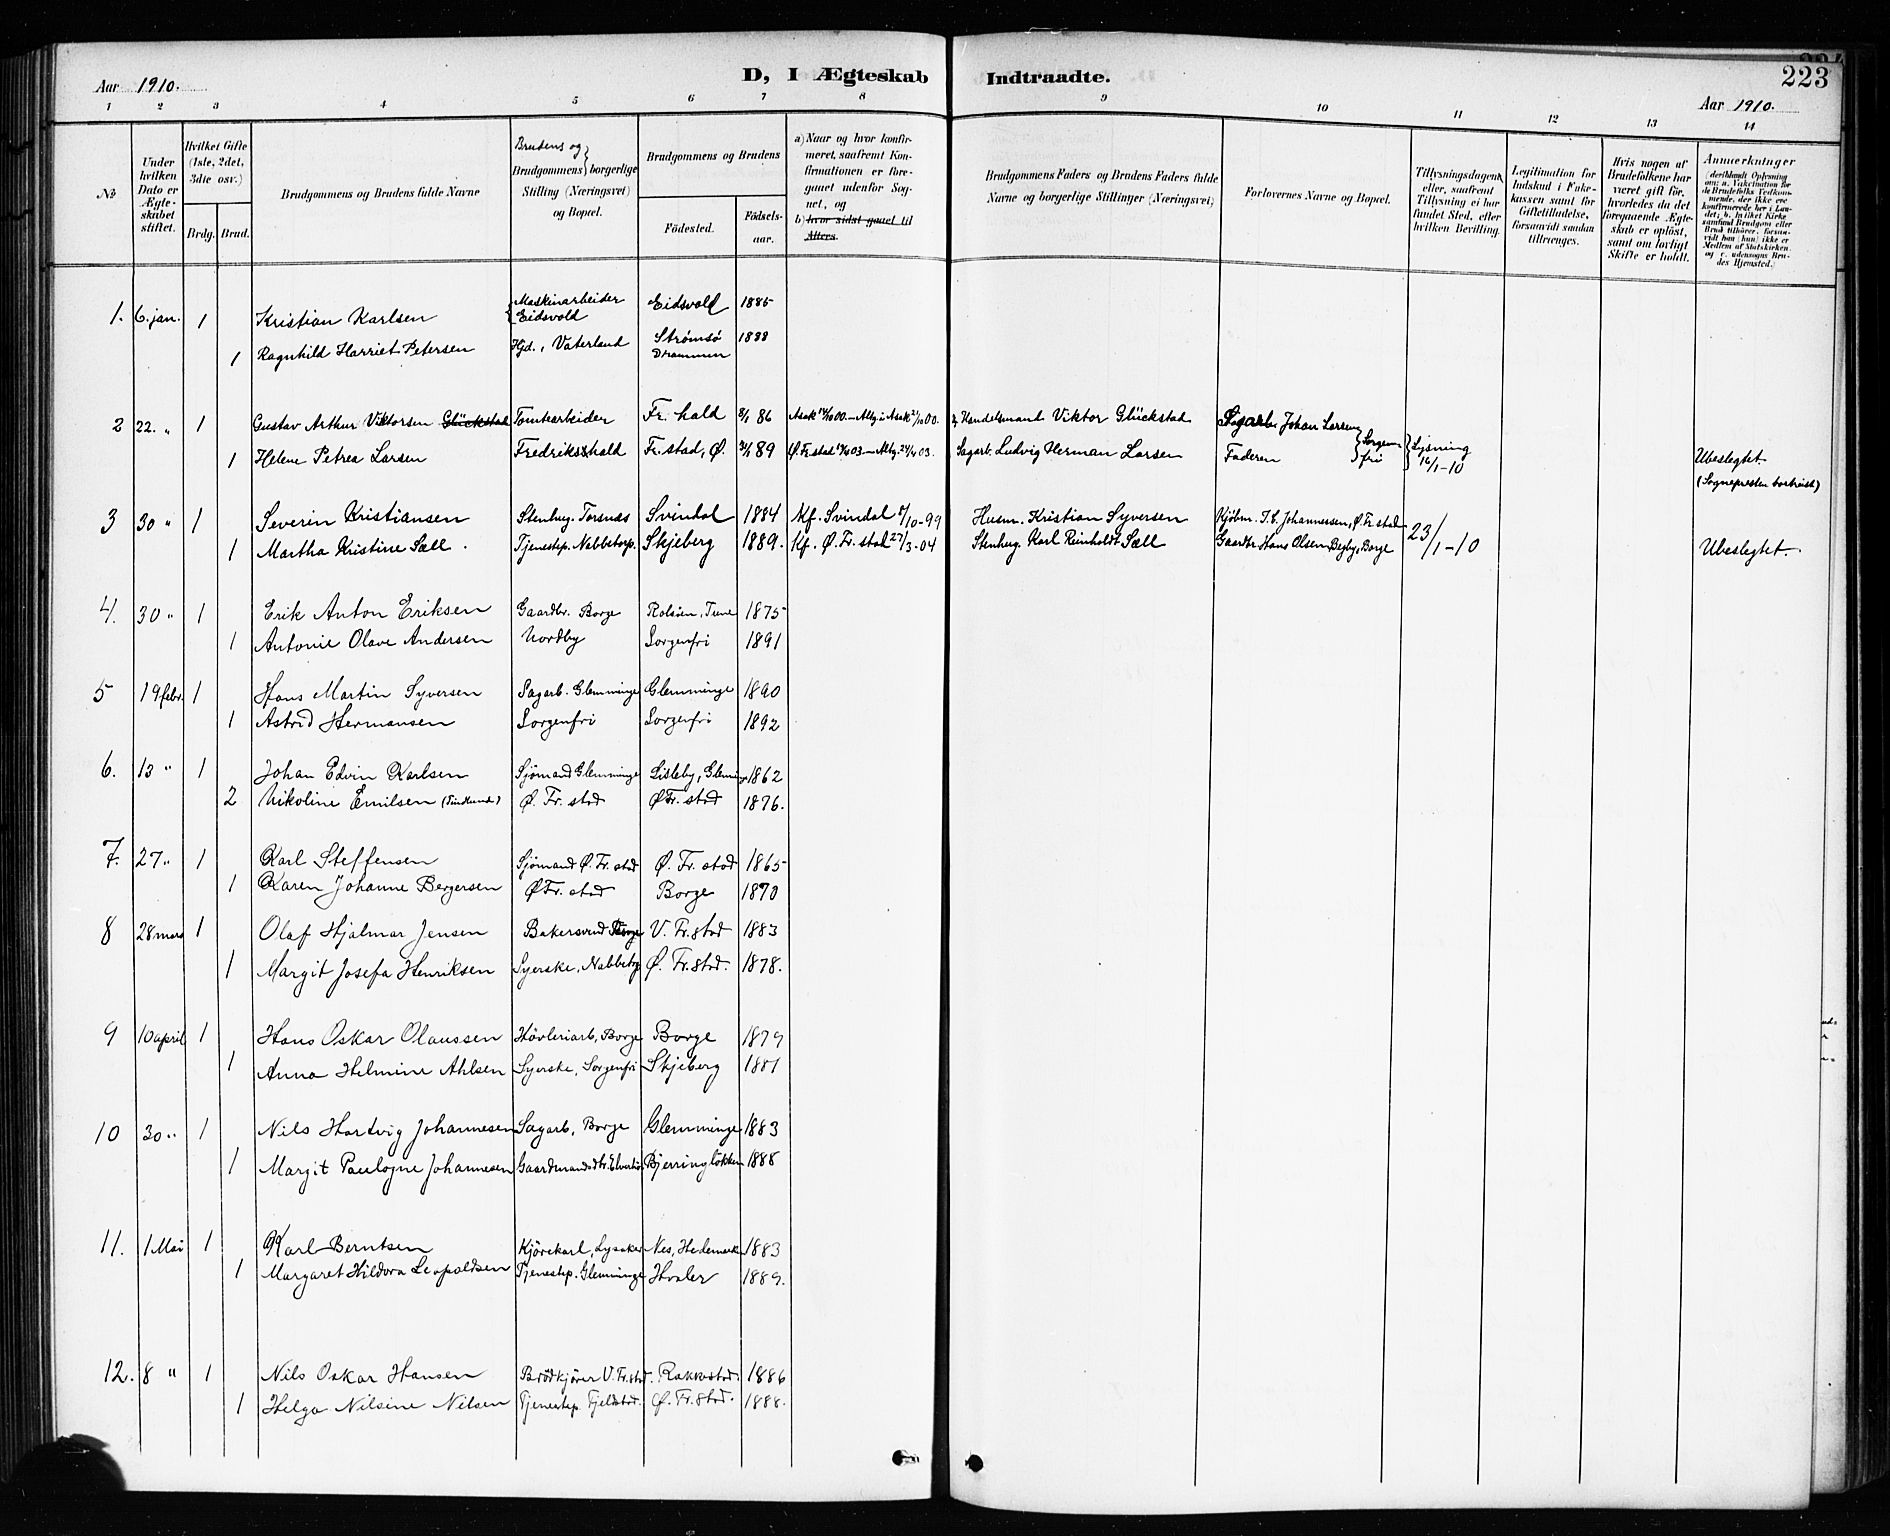 223
Aar 1910.
D, I Ægteskab Indtraadte.
Aar 1910.
1 2 3 4 5 6 7 8 9 10 11 12 13 14
No
Under hvilken Dato er Ægteskabet stiftet.
Hvilket Gifte (1ste, 2det, 3die osv.)
Brdg. Brud.
Brudgommens og Brudens fulde Navne
Brudens og Brudgommens borgerlige Stilling (Næringsvei) og Bopæl.
Brudgommens og Brudens
Fødested. Fødselsaar.
a) Naar og hvor konfirmeret, saafremt Konfirmationen er foregaaet udenfor Sognet, og
b) hvor sidst gaaet til Alters.
Brudgommens Faders og Brudens Faders fulde Navne og borgerlige Stillinger (Næringsvei)
Forlovernes Navne og Bopæl.
Tillysningsdagene eller, saafremt Tillysning ei har fundet Sted, efter hvilken Bevilling.
Legitimation for Indskud i Enkekassen samt for Giftetilladelse, forsaavidt saadan tiltrænges.
Hvis nogen af Brudefolkene har været gift før, hvorledes da det foregaaende Ægteskab er opløst, samt om lovligt Skifte er holdt.
Anmærkninger (deriblandt Oplysning om: a. Vaktination for de Brudefolks Vedkommende, der ikke ere konfirmerede her i Landet; b. hvilket Kirkesamfund Brudgom eller Brud tilhører, forsaavidt han (hun) ikke er Medlem af Statskirken og c. udensogns Brudes Hjemsted.)
1. 6. jan. 1 Kristian Karlsen Maskinarbeider Eidsvold Eidsvold 1885
1 Ragnhild Harriet Petersen Hjd., Vaterland Strømsø Drammen 1888
2 22. " 1 Gustav Arthur Viktorsen Glückstad Tomtearbeider Fr. hald 8/1 86 Handelsmant Viktor Glückstad Sagarb. Johan Larsen
1 Helene Petrea Larsen Fredrikshald Fr. stad, Ø. 89 Sagarb. Ludvig Herman Larsen Faderen Sorgenfri Lysning 16/1-10 Ubeslegtet.
(Sognepresten bortreist)
3 30 " 1 Severin Kristiansen Stenhug. Torsnæs Svindal 1884 Kf. Svindal 8/10-99 Husm. Kristian Syversen Kjøbm. J. C. Johannessen, Ø. Fr. stad
1 Martha Kristine Sæll. Tjenestep. Nabbetorp. Skjeberg 1889. Kf. Ø. Fr. stad 27/3-04 Stenhug. Karl Reinholdt Sæll Gaardbr Hans Olsen Begby, Borge 23/1-10 Ubeslegtet.
4. 30 " 1 Erik Anton Eriksen Gaardbr. Borge Rolsøen, Tune 1875
1 Antonie Olave Andersen Nordby Sorgenfri 1891
5 19 febr. 1 Hans Martin Syversen Sagarb. Glemminge Glemminge 1890
1 Astrid Hermansen Sorgenfri Sorgenfri 1892
6. 13 " 1 Johan Edvin Karlsen Sjømand Glemminge Lisleby, Glemminge 1862
2 Nikoline Emilsen (Tindlund) Ø. Fr. stad Ø Fr. stad 1876.
7. 27 " 1 Karl Steffensen Sjømand Ø. Fr. stad Ø. Fr. stad 1865
1 Karen Johanne Bergersen Ø Fr. stad Borge 1870
8 28 mars 1 Olaf Hjalmar Jensen Bakersvend Borge V. Fr. stad 1883
1 Margit Josefa Henriksen Syerske, Nabbetorp Ø. Fr. stad. 1878.
9 10 april 1 Hans Oskar Olaussen Høvleriarb, Borge Borge 1879
1 Anna Helmine Ahlsen Syerske, Sorgenfri Skjeberg 1881
10 30 " 1 Nils Hartvig Johannesen Sagarb, Borge Glemminge 1883
1 Margit Paulogne Johannesen Gaardmandsdtr. Bjerringløkken 1888
11. 1 Mai 1 Karl Berntsen Kjørekarl, Lysaker Nes, Hedemark 1883
1 Margaret Hildora Leopoldsen Tjenestep. Glemminge Hvaler 1889.
12. 8 " 1 Nils Oskar Hansen Brødkjører V. Fr. stad. Rakkestad. 1886
1 Helga Nilsine Nilsen Tjenestep. Fjeldstad. Ø. Fr. stad. 1888.